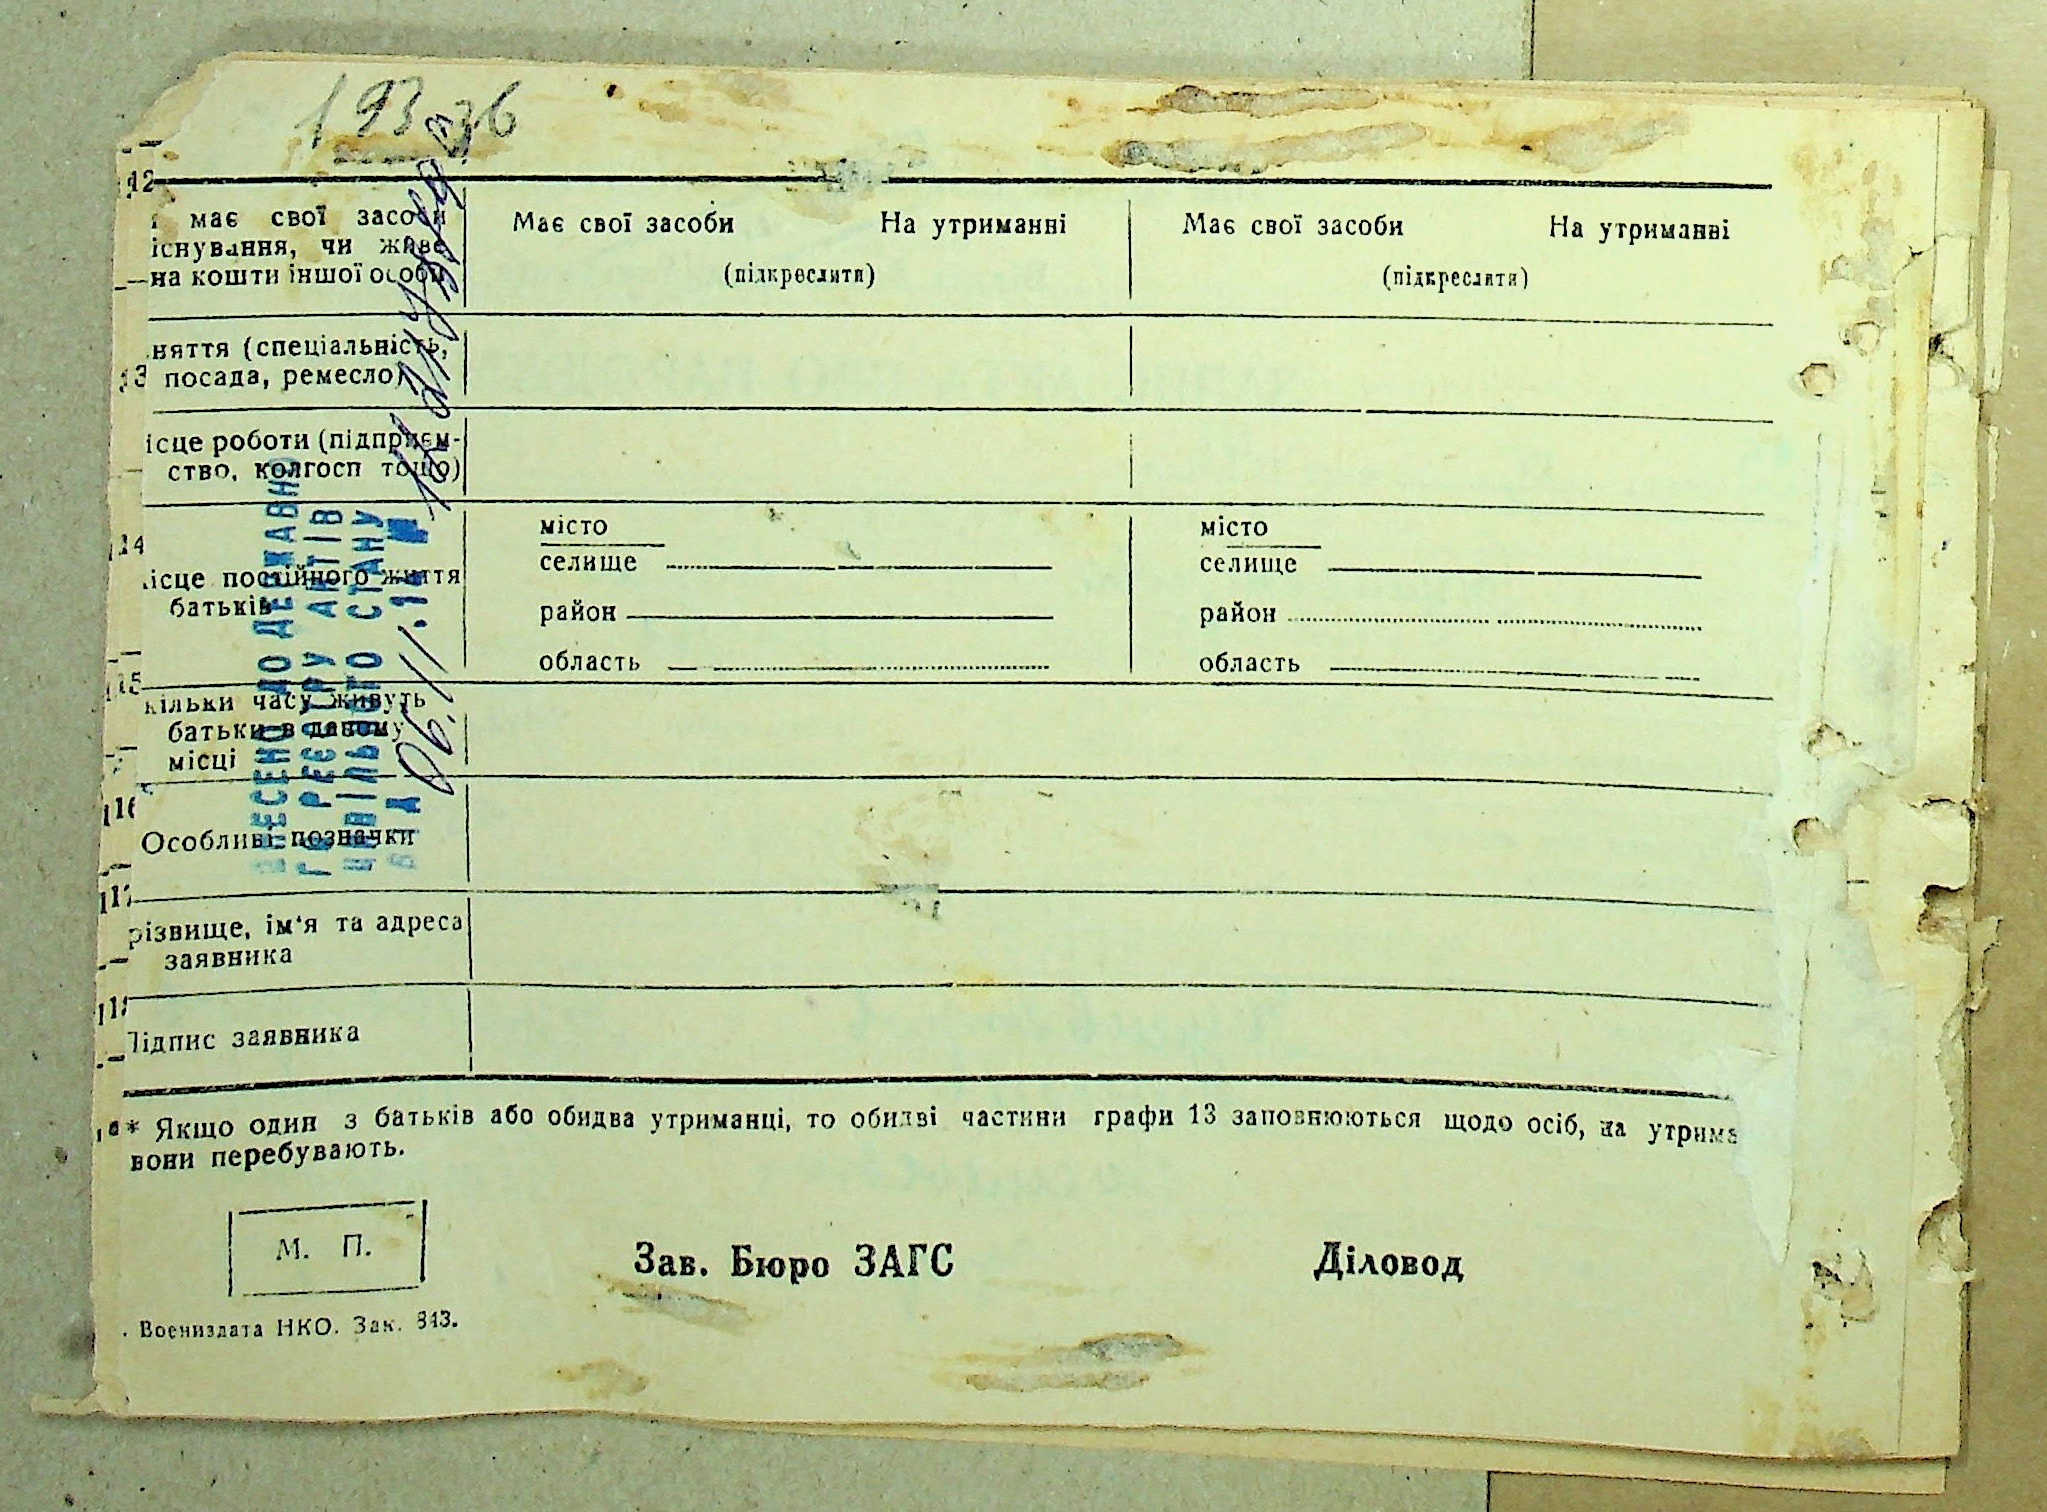 193
36
12
має свої засоби
існування, чи живе
на кошти іншої особи
Має свої засоби На утриманні
(підкреслити)
Має свої засоби На утриманні
(підкреслити)
13
няття (спеціальність,
посада, ремесло)
ісце роботи (підприєм-
ство, колгосп тощо)
14
ісце постійного життя
батьків
місто
селище
район
область
місто
селище
район
область
15
кільки часу живуть
батьки в даному
місці
16
Особливі позначки
17
різвище, ім'я та адреса
заявника
Підпис заявника
* Якщо один з батьків або обидва утриманці, то обидві частини графи 13 заповнюються щодо осіб, на утрима
вони перебувають.
М. П.
Зав. Бюро ЗАГС
Діловод
Воениздата НКО. Зак. 843.
ВНЕСЕНО ДО ДЕРЖАВНО
ГО РЕЄСТРУ АКТІВ
ЦИВІЛЬНОГО СТАНУ
06.11.